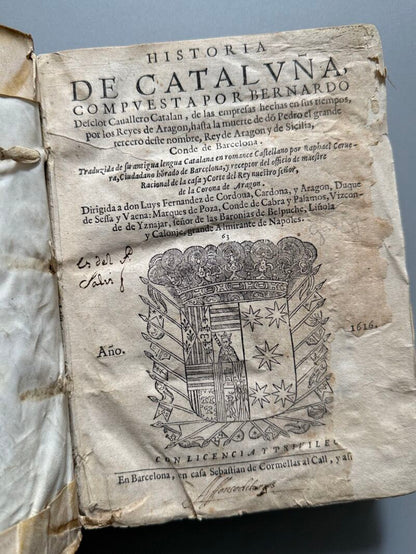 HISTORIA
DE CATALVÑA,
COMPVESTA POR BERNARDO
Desclot Cauallero Catalan, de las empresas hechas en sus tiempos,
por los Reyes de Aragon, hasta la muerte de dõ Pedro el grande
tercero deste nombre, Rey de Aragon y de Sicilia,
Conde de Barcelona.
Traduzida de su antigua lengua Catalana en romance Castellano por Raphael Cerue-
ra, Ciudadano hõrado de Barcelona, y receptor del officio de maestre
Racional de la casa y Corte del Rey nuestro señor,
de la Corona de Aragon.
Dirigida a don Luys Fernandez de Cordoua, Cardona, y Aragon, Duque
de Sessa y Vaena: Marques de Poza, Conde de Cabra y Palamos, Vizcon-
de de Yznajar, señor de las Baronias de Belpuche, Liñola
y Calonje, grande Almirante de Napoles.
63
es del P.
Salvi
Año.
1616.
CON LICENCIA Y PRIVILE
En Barcelona, en casa Sebastian de Cormellas al Call, y a